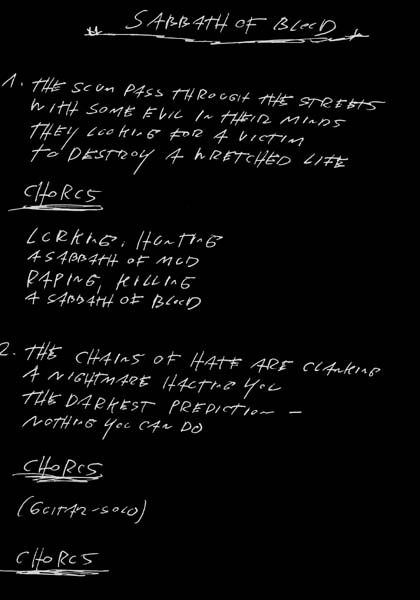 SABBATH OF BLOOD
1. THE SCUM PASS THROUGH THE STREETS
WITH SOME EVIL IN THEIR MINDS
THEY LOOKING FOR A VICTIM
TO DESTROY A WRETCHED LIFE
CHORUS
LURKING, HUNTING
A SABBATH OF MUD
RAPING, KILLING
A SABBATH OF BLOOD
2. THE CHAINS OF HATE ARE CLANKING
A NIGHTMARE HALTING YOU
THE DARKEST PREDICTION –
NOTHING YOU CAN DO
CHORUS
(GUITAR-SOLO)
CHORUS